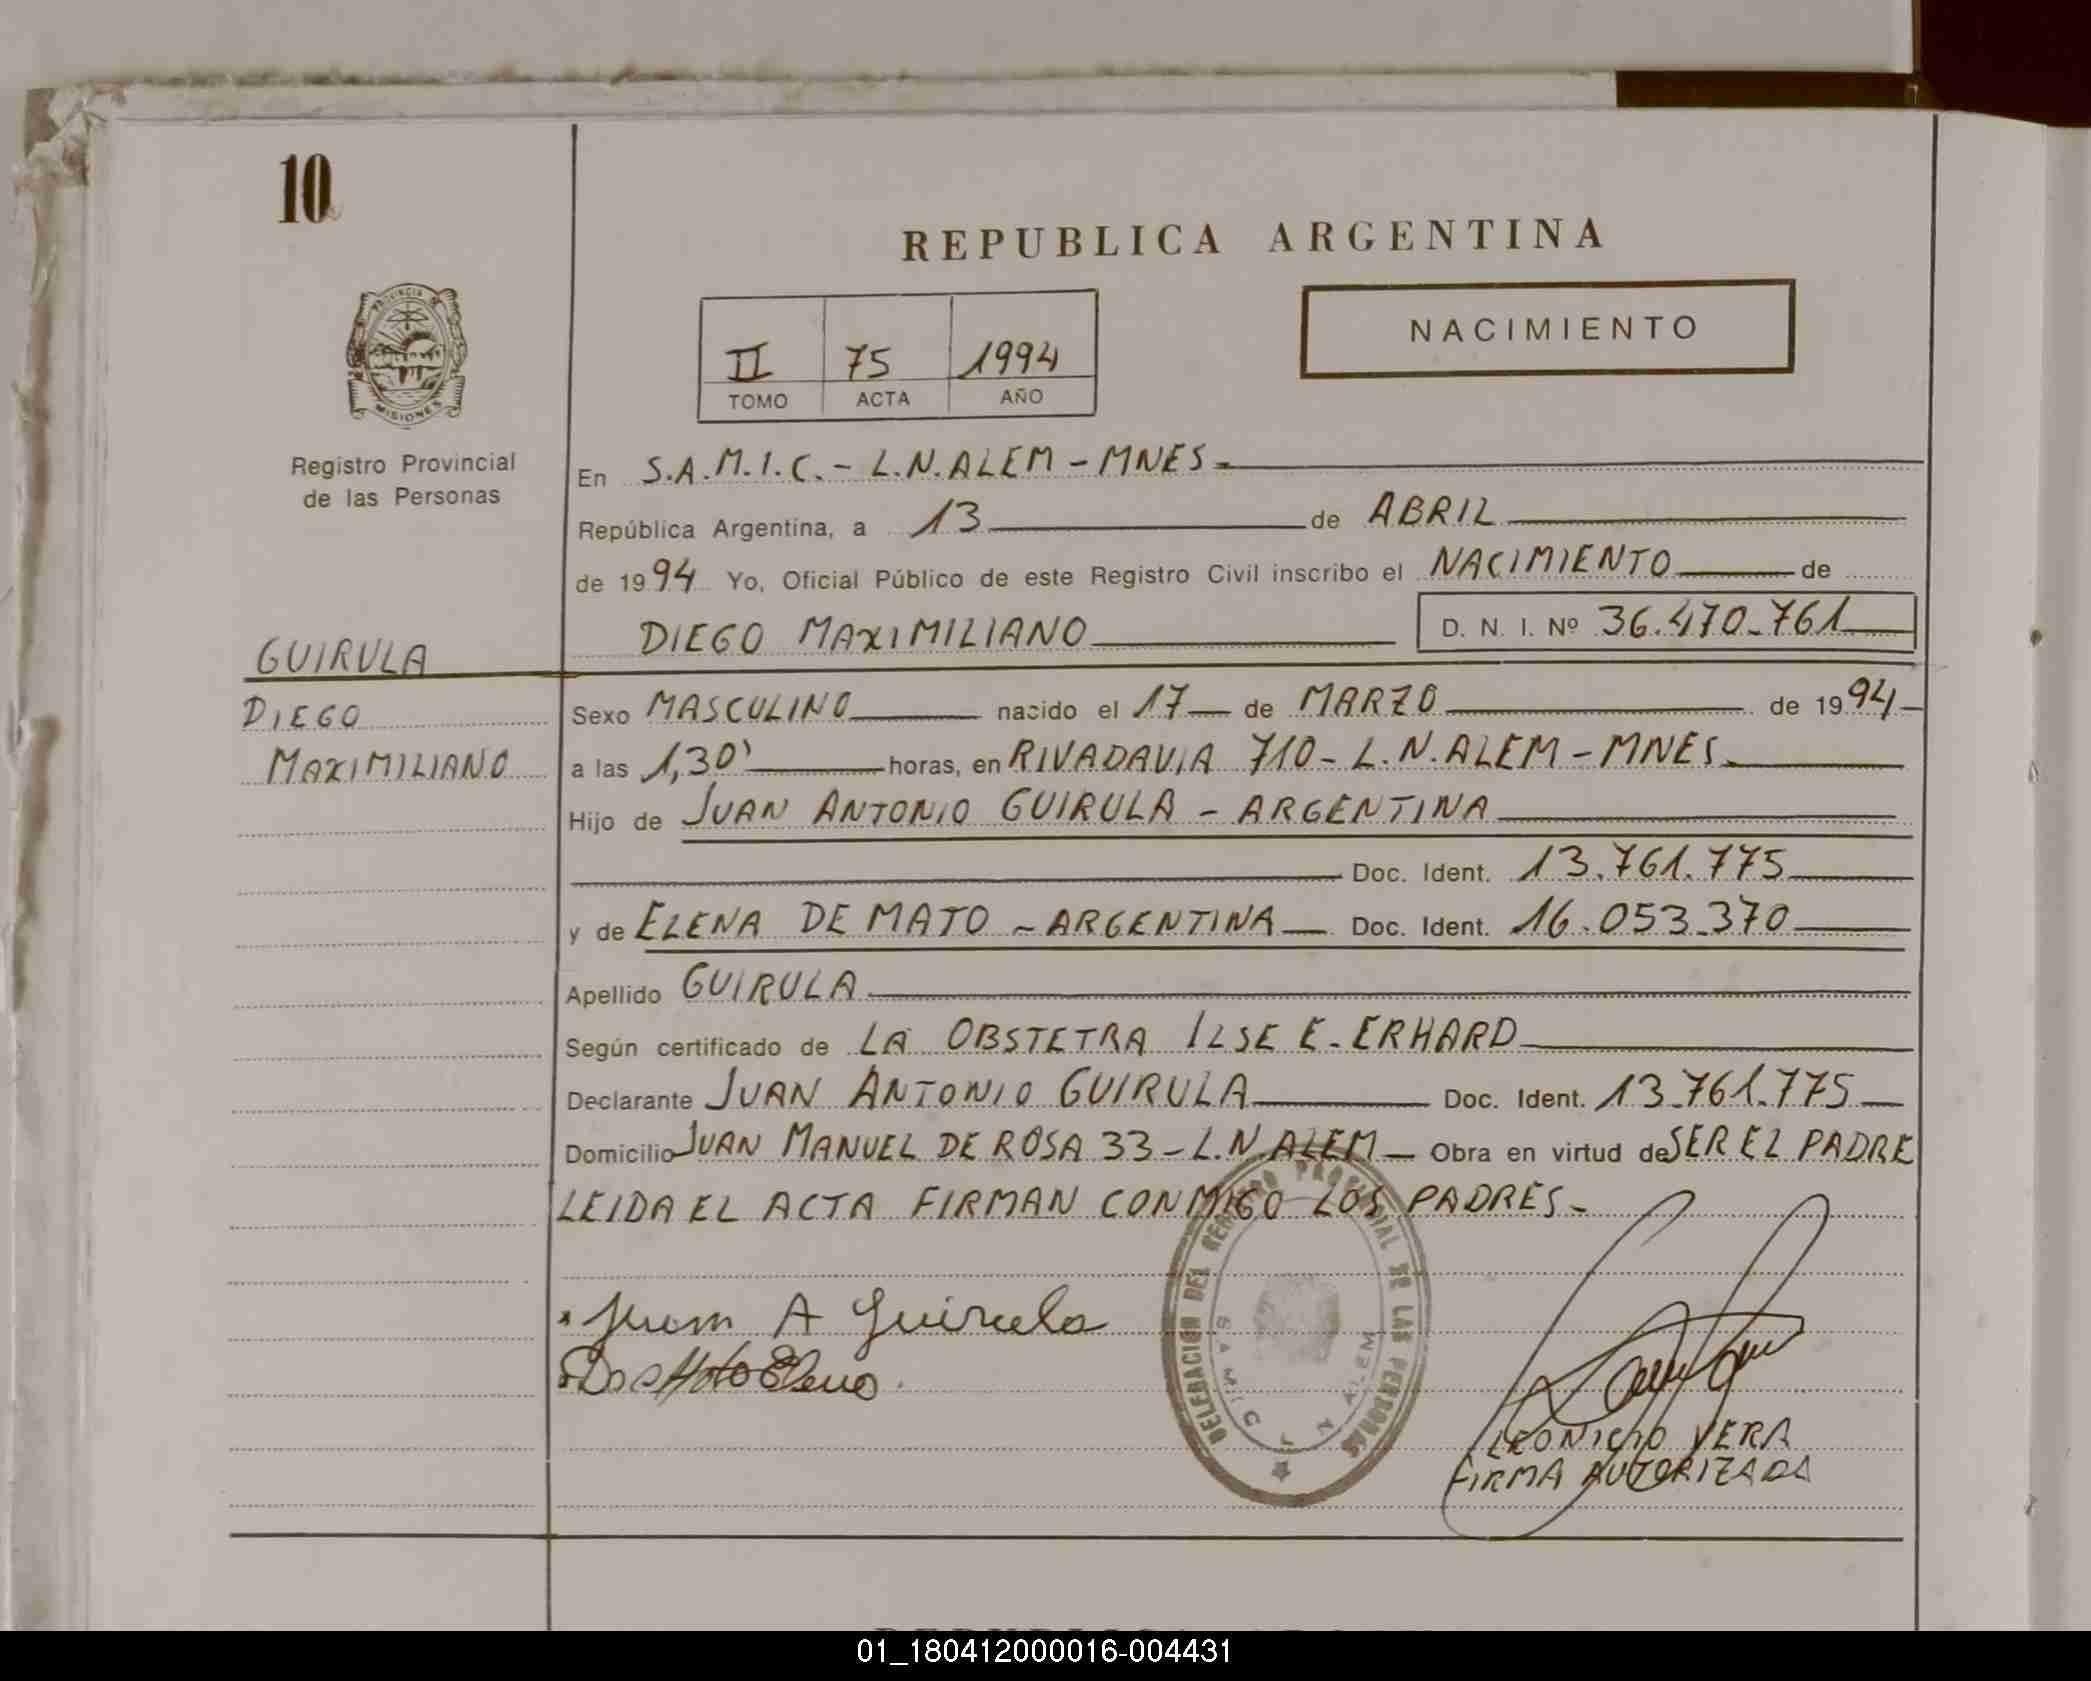 10
REPUBLICA ARGENTINA
NACIMIENTO
II 75 1994
TOMO ACTA AÑO
PROVINCIA DE
MISIONES
Registro Provincial
de las Personas
En S.A.M.I.C. - L.N.ALEM - MNES -
República Argentina, a 13 de ABRIL
de 1994 Yo, Oficial Público de este Registro Civil inscribo el NACIMIENTO de
DIEGO MAXIMILIANO D. N. I. Nº 36.470.761
GUIRULA
DIEGO
MAXIMILIANO
Sexo MASCULINO nacido el 17 de MARZO de 1994
a las 1,30' horas, en RIVADAVIA 710 - L.N.ALEM - MNES.
Hijo de JUAN ANTONIO GUIRULA - ARGENTINA
Doc. Ident. 13.761.775
y de ELENA DE MATO - ARGENTINA Doc. Ident. 16.053.370
Apellido GUIRULA
Según certificado de LA OBSTETRA ILSE E. ERHARD
Declarante JUAN ANTONIO GUIRULA Doc. Ident. 13.761.775
Domicilio JUAN MANUEL DE ROSA 33 - L.N.ALEM Obra en virtud de SER EL PADRE
LEIDA EL ACTA FIRMAN CONMIGO LOS PADRES -
DELEGACION DEL REGISTRO PROVINCIAL DE LAS PERSONAS
S.A.M.I.C. L N ALEM
Juan A Guirula
De Mato Elena
LEONICIO VERA
FIRMA AUTORIZADA
01_180412000016-004431